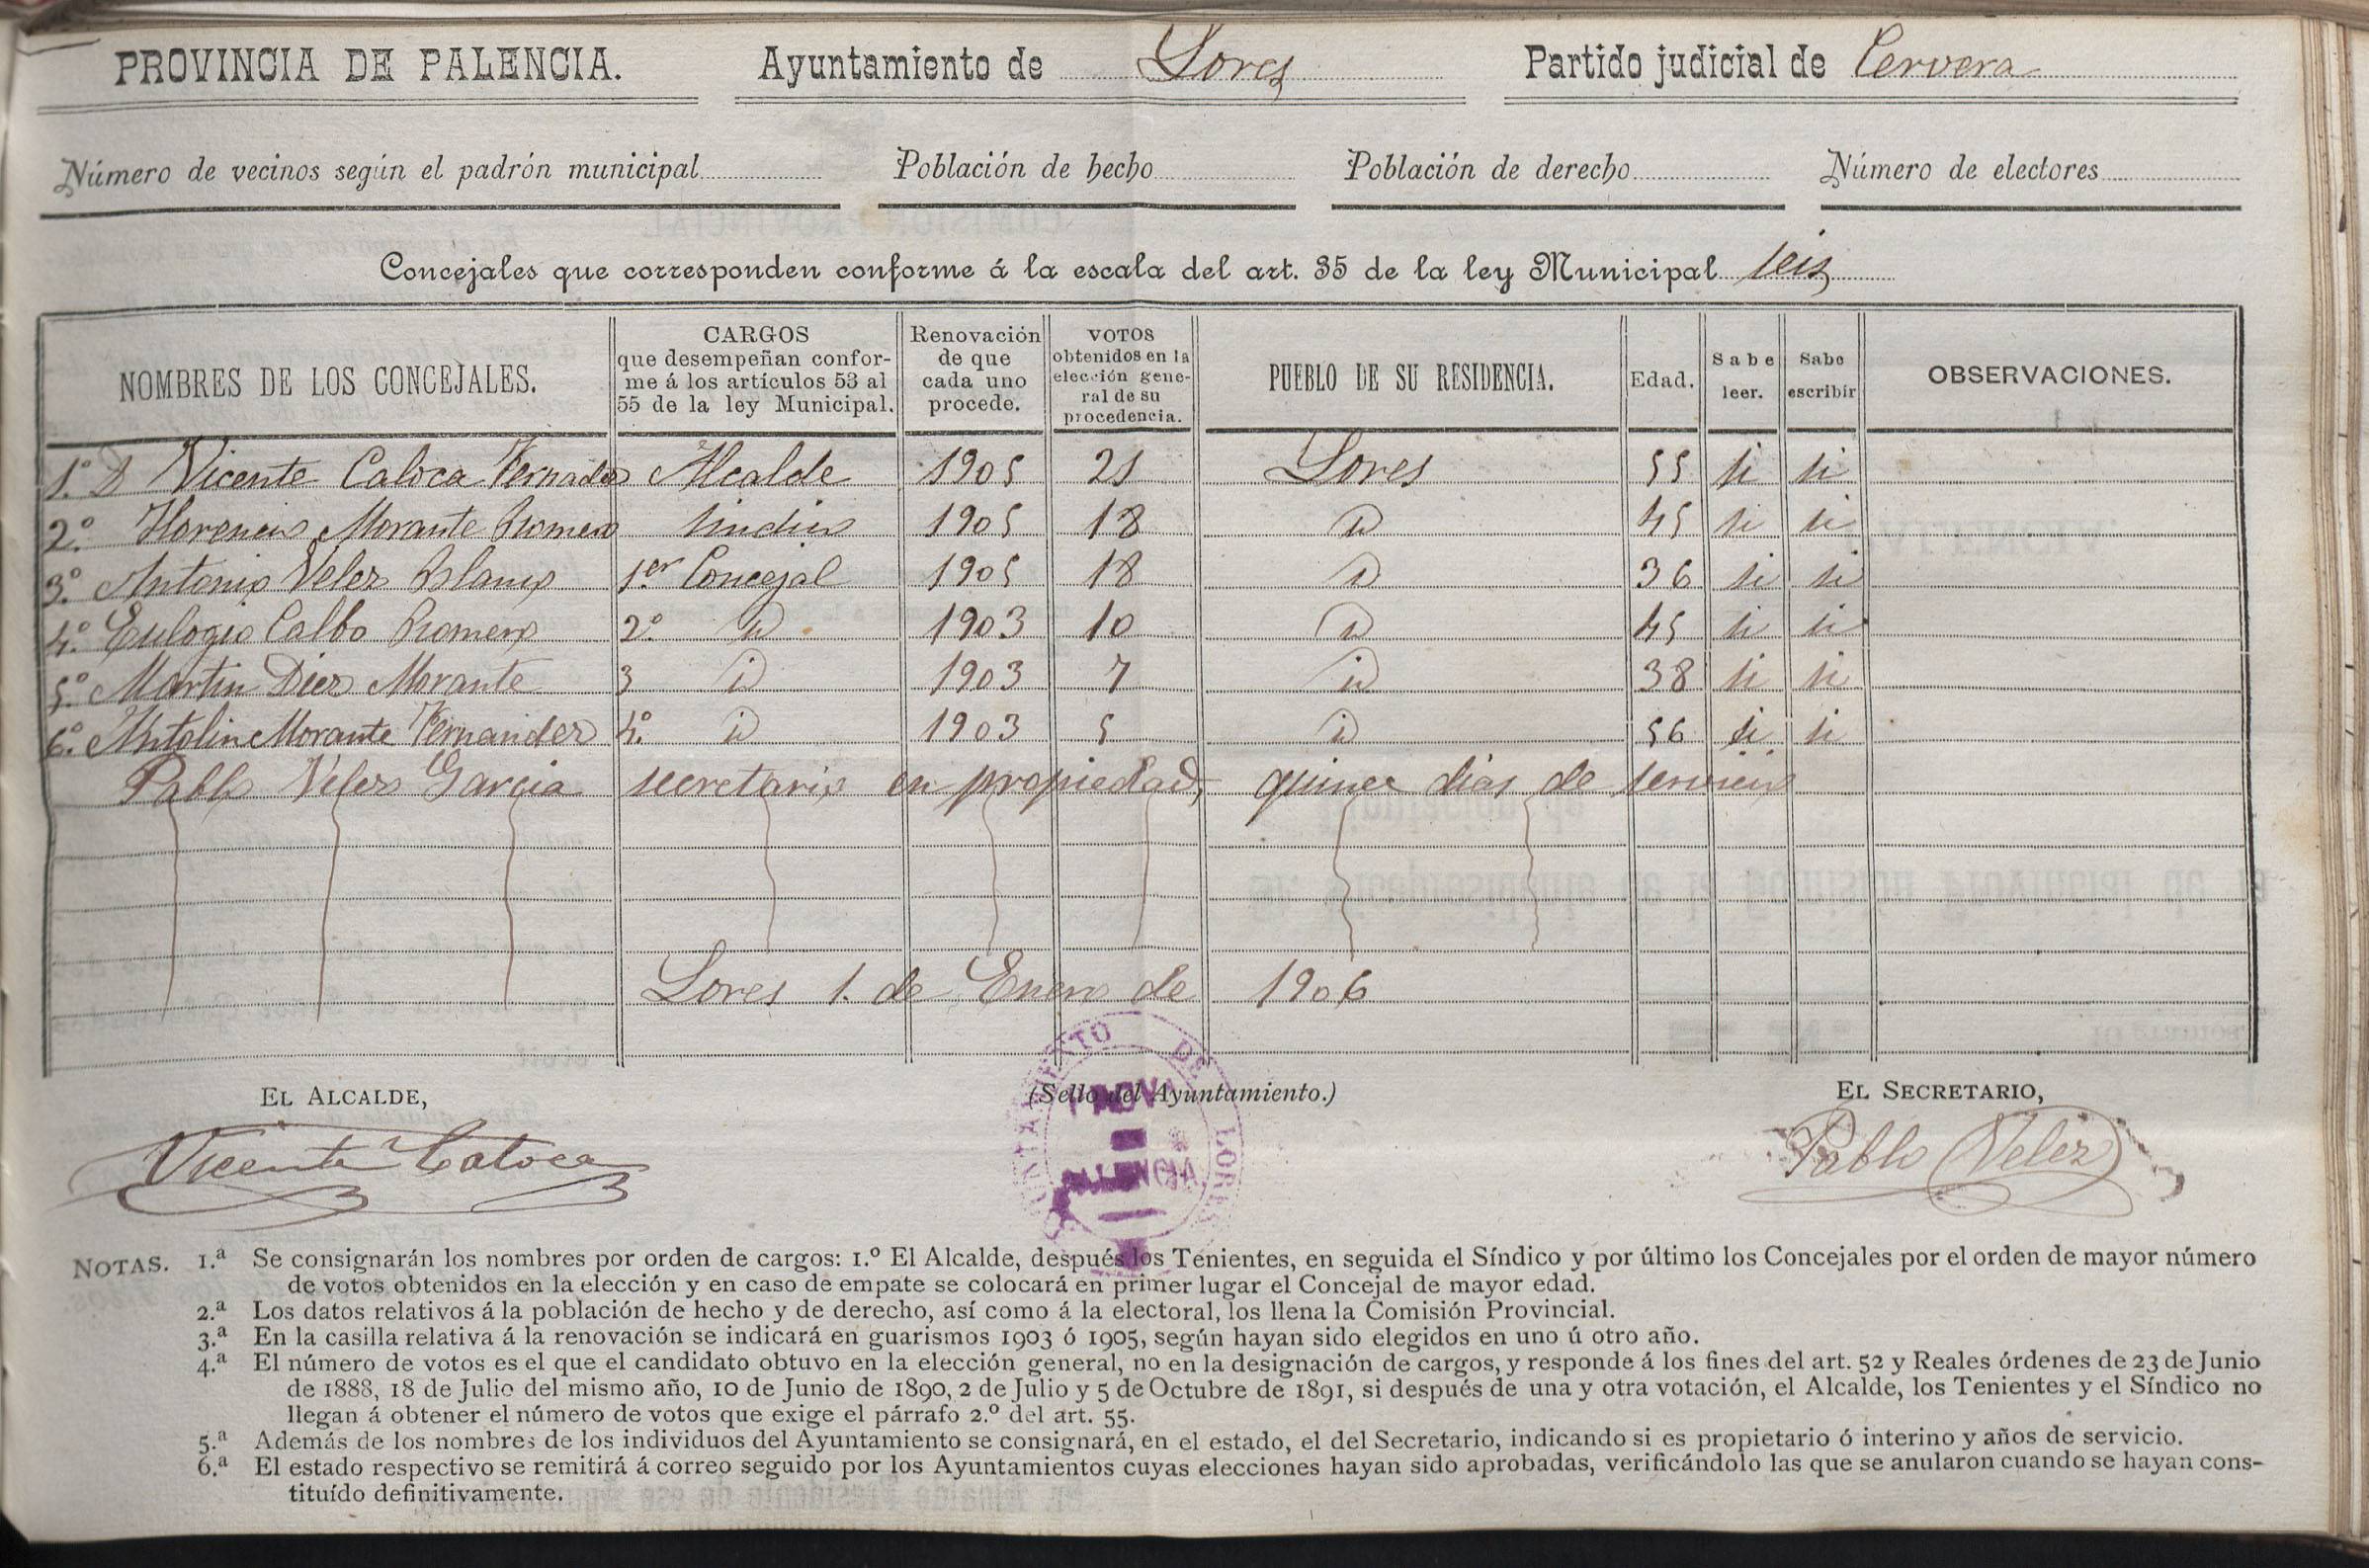 PROVINCIA DE PALENCIA. Ayuntamiento de Lores Partido judicial de Cervera
Número de vecinos según el padrón municipal Población de hecho Población de derecho Número de electores
Concejales que corresponden conforme á la escala del art. 35 de la ley Municipal seis
NOMBRES DE LOS CONCEJALES. CARGOS que desempeñan confor- me á los artículos 53 al 55 de la ley Municipal. Renovación de que cada uno procede. VOTOS obtenidos en la elección gene- ral de su procedencia. PUEBLO DE SU RESIDENCIA. Edad. Sabe leer. Sabe escribir OBSERVACIONES.
1.º D Vicente Caloca Fernadez Alcalde 1905 21 Lores 55 si si
2.º Florencio Morante Romero sindico 1905 18 id 45 si si
3.º Antonio Velez Blanco 1.er Concejal 1905 18 id 36 si si
4.º Eulogio Calbo Romero 2.º id 1903 10 id 45 si si
5.º Martin Diez Morante 3 id 1903 7 id 38 si si
6.º Antolin Morante Fernandez 4.º id 1903 5 id 56 si si
Pablo Velez Garcia secretario en propiedad, quince dias de servicio
Lores 1. de Enero de 1906
EL ALCALDE, (Sello del Ayuntamiento.) EL SECRETARIO,
AYUNTAMIENTO DE LORES
PROVA
PALENCIA
Vicente Caloca Pablo Velez
NOTAS. 1.ª Se consignarán los nombres por orden de cargos: 1.º El Alcalde, después los Tenientes, en seguida el Síndico y por último los Concejales por el orden de mayor número
de votos obtenidos en la elección y en caso de empate se colocará en primer lugar el Concejal de mayor edad.
2.ª Los datos relativos á la población de hecho y de derecho, así como á la electoral, los llena la Comisión Provincial.
3.ª En la casilla relativa á la renovación se indicará en guarismos 1903 ó 1905, según hayan sido elegidos en uno ú otro año.
4.ª El número de votos es el que el candidato obtuvo en la elección general, no en la designación de cargos, y responde á los fines del art. 52 y Reales órdenes de 23 de Junio
de 1888, 18 de Julio del mismo año, 10 de Junio de 1890, 2 de Julio y 5 de Octubre de 1891, si después de una y otra votación, el Alcalde, los Tenientes y el Síndico no
llegan á obtener el número de votos que exige el párrafo 2.º del art. 55.
5.ª Además de los nombres de los individuos del Ayuntamiento se consignará, en el estado, el del Secretario, indicando si es propietario ó interino y años de servicio.
6.ª El estado respectivo se remitirá á correo seguido por los Ayuntamientos cuyas elecciones hayan sido aprobadas, verificándolo las que se anularon cuando se hayan cons-
tituído definitivamente.